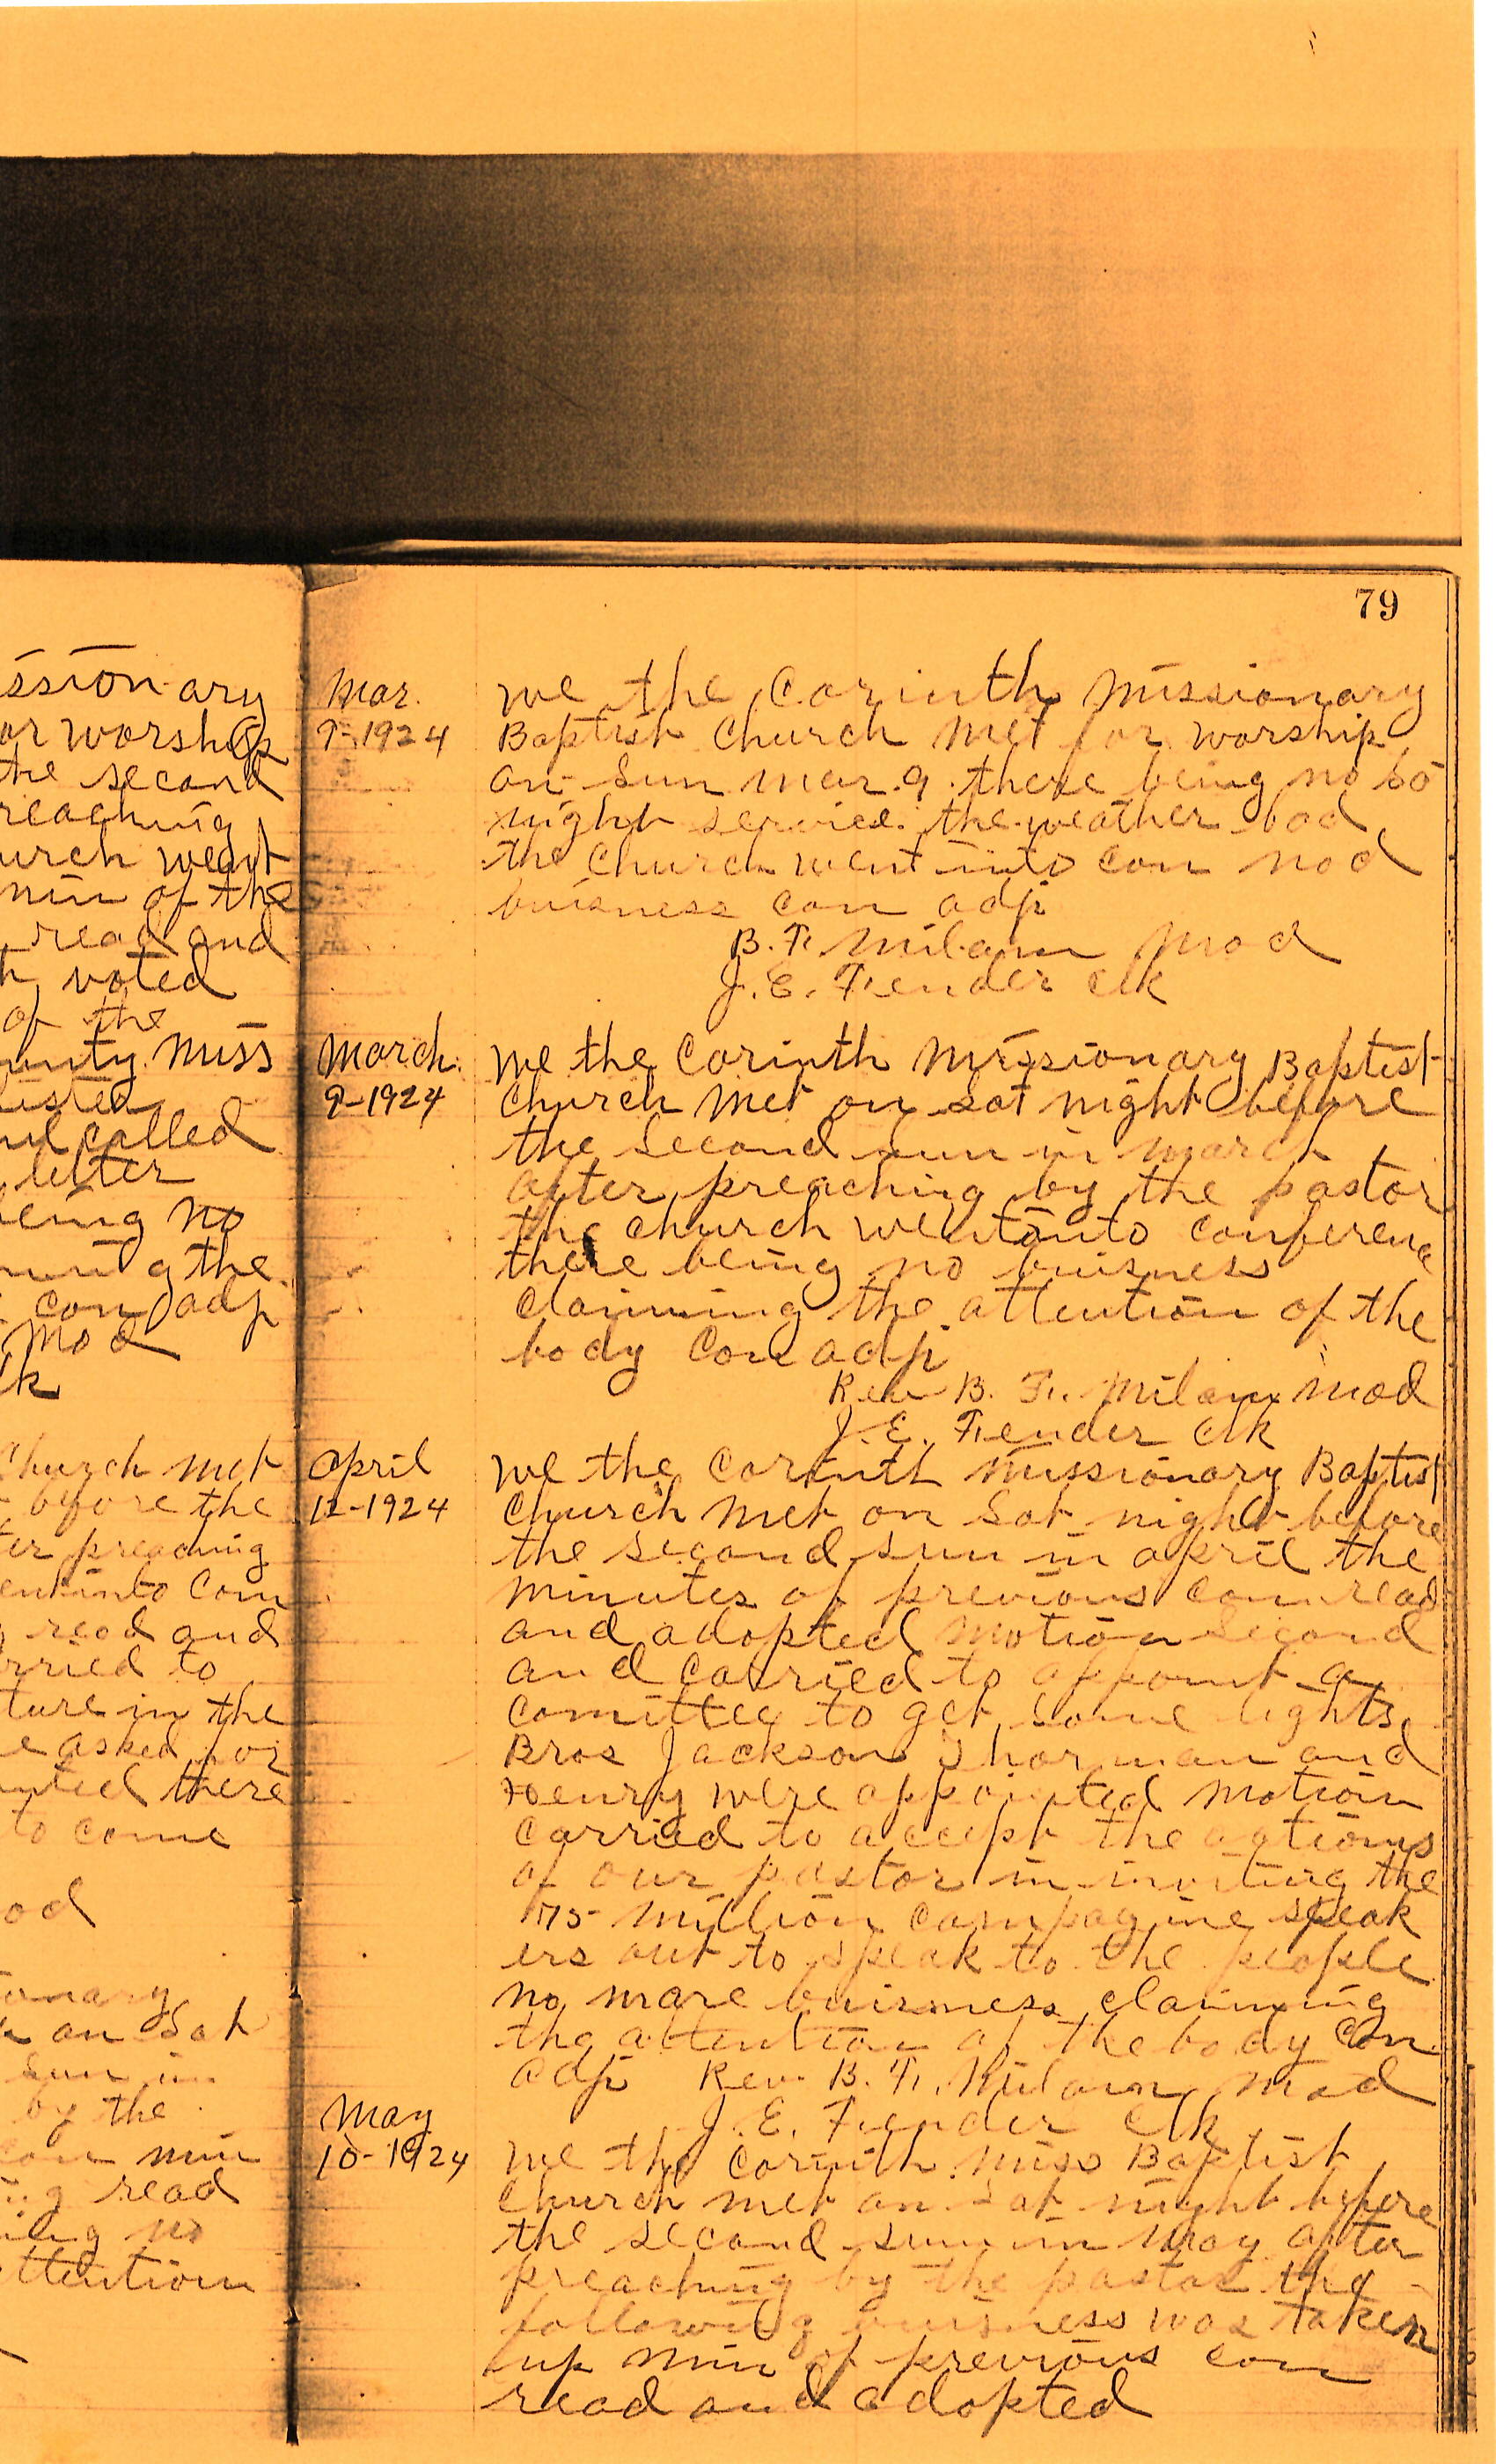 79
ssionary
or worship
the second
reaching
urch went
min of the
read and
h voted
of the
unty Miss
listed
nd called
letter
being no
ming the
con adj
Mod
lk
Church met
before the
ter preaching
ent into Con
read and
rried to
ture in the
e asked for
nted there
to come
od
onary
on Sat
Sun in
by the
con min
ng read
ing no
ttention
Mar.
9-1924
We the Corinth Missionary
Baptist Church Met for worship
on Sun Mar. 9. there being no
night service. the weather bad
the Church went into Con no
buisness Con adj
B. F. Milam Mod
J. E. Fender Clk
March
9-1924
We the Corinth Missionary Baptist
Church Met on Sat night before
the Second Sun in March
after preaching by the pastor
the Church went into Conferenc
there being no buisness
Claiming the attention of the
body Con adj
Rev B. F. Milam Mod
J. E. Fender Clk
April
12-1924
We the Corinth Missionary Baptist
Church Met on Sat night before
the Second Sun in April the
Minutes of previous Con read
and adopted Motion Second
and Carried to appoint a
Comittee to get Some lights
Bros Jackson Thorman and
Henry were appointed Motion
Carried to accept the actions
of our pastor in inviting the
75 Million Campagine Speak
ers out to Speak to the people
No more buisness claiming
the attention of the body Con
adj Rev. B. F. Milam Mod
J. E. Fender Clk
May
10-1924
We the Corinth Miss Baptist
Church met on Sat night before
the Second Sun in May after
preaching by the pastor the
following buisness was taken
up Min of previous Con
read and adopted